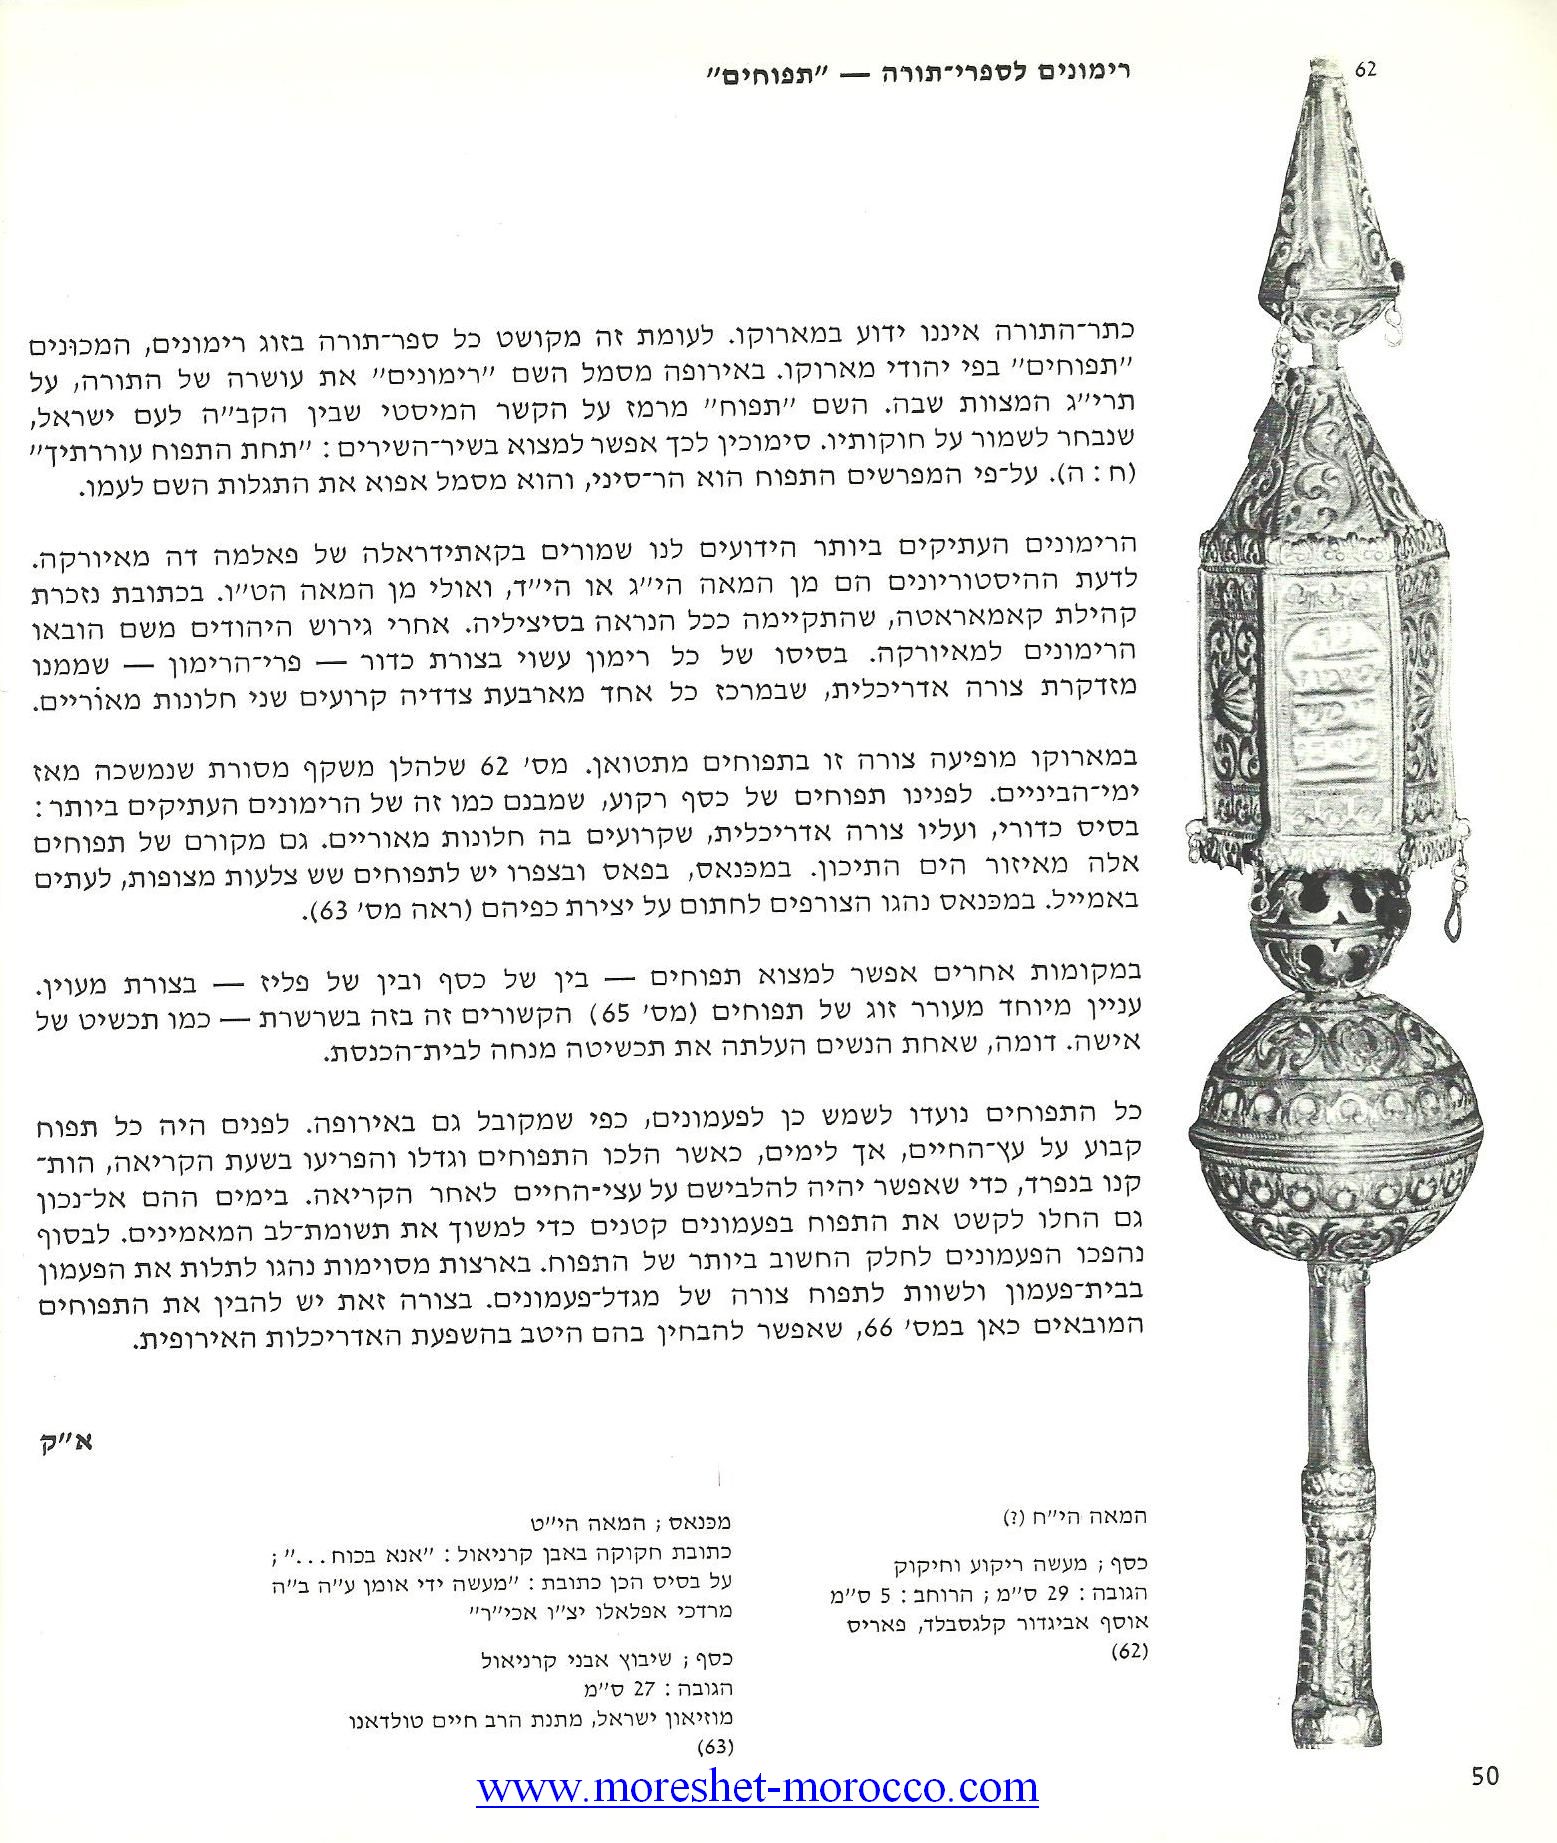 62
רימונים לספרי־תורה — ״תפוחים״
כתר־התורה איננו ידוע במארוקו. לעומת זה מקושט כל ספר־תורה בזוג רימונים, המכוּנים
״תפוחים״ בפי יהודי מארוקו. באירופה מסמל השם ״רימונים״ את עושרה של התורה, על
תרי״ג המצוות שבה. השם ״תפוח״ מרמז על הקשר המיסטי שבין הקב״ה לעם ישראל,
שנבחר לשמור על חוקותיו. סימוכין לכך אפשר למצוא בשיר־השירים : ״תחת התפוח עוררתיך״
(ח : ה). על־פי המפרשים התפוח הוא הר־סיני, והוא מסמל אפוא את התגלות השם לעמו.
הרימונים העתיקים ביותר הידועים לנו שמורים בקאתידראלה של פאלמה דה מאיורקה.
לדעת ההיסטוריונים הם מן המאה הי״ג או הי״ד, ואולי מן המאה הט״ו. בכתובת נזכרת
קהילת קאמאראטה, שהתקיימה ככל הנראה בסיציליה. אחרי גירוש היהודים משם הובאו
הרימונים למאיורקה. בסיסו של כל רימון עשוי בצורת כדור — פרי־הרימון — שממנו
מזדקרת צורה אדריכלית, שבמרכז כל אחד מארבעת צדדיה קרועים שני חלונות מאוֹריים.
במארוקו מופיעה צורה זו בתפוחים מתטואן. מס׳ 62 שלהלן משקף מסורת שנמשכה מאז
ימי־הביניים. לפנינו תפוחים של כסף רקוע, שמבנם כמו זה של הרימונים העתיקים ביותר :
בסיס כדורי, ועליו צורה אדריכלית, שקרועים בה חלונות מאוריים. גם מקורם של תפוחים
אלה מאיזור הים התיכון. במכּנאס, בפאס ובצפרו יש לתפוחים שש צלעות מצופות, לעתים
באמייל. במכּנאס נהגו הצורפים לחתום על יצירת כפיהם (ראה מס׳ 63).
במקומות אחרים אפשר למצוא תפוחים — בין של כסף ובין של פליז — בצורת מעוין.
עניין מיוחד מעורר זוג של תפוחים (מס׳ 65) הקשורים זה בזה בשרשרת — כמו תכשיט של
אישה. דומה, שאחת הנשים העלתה את תכשיטה מנחה לבית־הכנסת.
כל התפוחים נועדו לשמש כן לפעמונים, כפי שמקובל גם באירופה. לפנים היה כל תפוח
קבוע על עץ־החיים, אך לימים, כאשר הלכו התפוחים וגדלו והפריעו בשעת הקריאה, הות־
קנו בנפרד, כדי שאפשר יהיה להלבישם על עצי־החיים לאחר הקריאה. בימים ההם אל־נכון
גם החלו לקשט את התפוח בפעמונים קטנים כדי למשוך את תשומת־לב המאמינים. לבסוף
נהפכו הפעמונים לחלק החשוב ביותר של התפוח. בארצות מסוימות נהגו לתלות את הפעמון
בבית־פעמון ולשוות לתפוח צורה של מגדל־פעמונים. בצורה זאת יש להבין את התפוחים
המובאים כאן במס׳ 66, שאפשר להבחין בהם היטב בהשפעת האדריכלות האירופית.
א״ק
המאה הי״ח (?)
כסף ; מעשה ריקוע וחיקוק
הגובה : 29 ס״מ ; הרוחב : 5 ס״מ
אוסף אביגדור קלגסבלד, פאריס
(62)
מכּנאס ; המאה הי״ט
כתובת חקוקה באבן קרניאול : ״אנא בכוח...״ ;
על בסיס הכן כתובת : ״מעשה ידי אומן ע״ה ב״ה
מרדכי אפלאלו יצ״ו אכי״ר״
כסף ; שיבוץ אבני קרניאול
הגובה : 27 ס״מ
מוזיאון ישראל, מתנת הרב חיים טולדאנו
(63)
www.moreshet-morocco.com
50